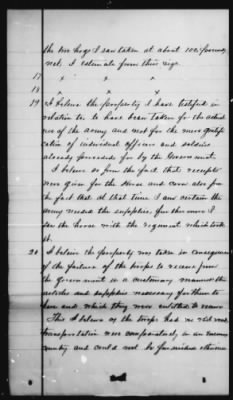 the two hogs I saw taken at about 100 pounds
net. I estimate from their size.
17 x x x
18 x x x
19 I believe the property I have testified in
relation to to have been taken for the actual
use of the army and not for the mere gratifi
cation of individual officers and soldiers
already provided for by the Government.
I believe so from the fact that receipts
were given for the Horse and Corn also from
the fact that at that time I am certain the
army needed the supplies, furthermore I
saw the horse with the regiment which took
it.
20 I believe the property was taken in consequence
of the failure of the troops to receive from
the Government in a customary manner the
articles and supplies necessary for them to
have and which they were entitled to receive
This I believe as the troops had no
transportation were comparatively in an enemies
country and could not be furnished otherwise